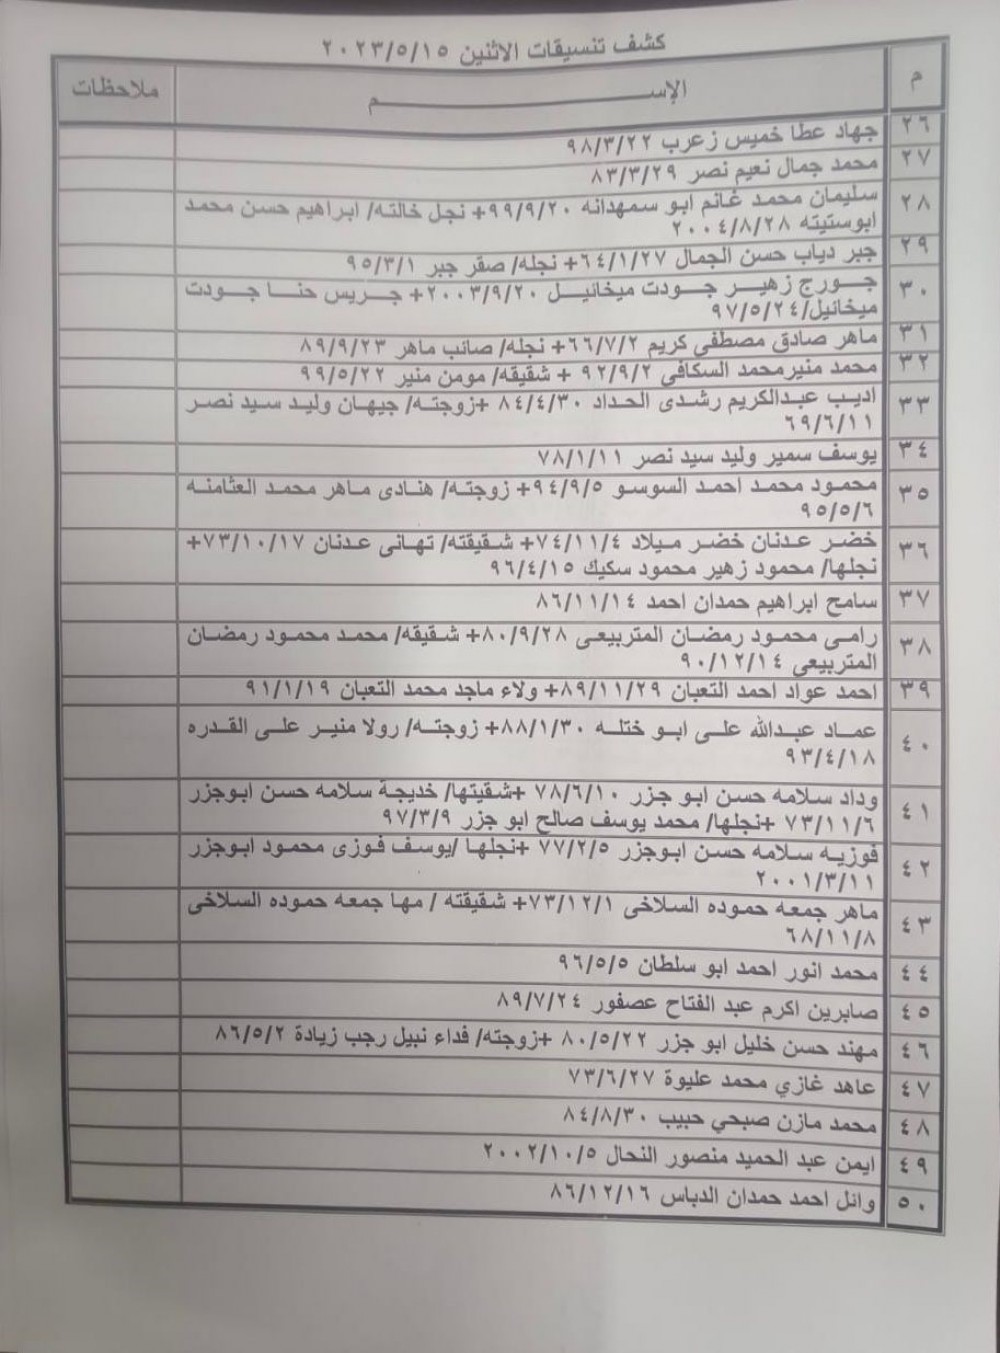 كشف تنسيقات الاثنين ٢٠٢٣/٥/١٥
م الإســـــم ملاحظات
٢٦ جهاد عطا خميس زعرب ٩٨/٣/٢٢
٢٧ محمد جمال نعيم نصر ٨٣/٣/٢٩
٢٨ سليمان محمد غانم ابو سمهدانه ٩٩/٩/٢٠+ نجل خالته/ ابراهيم حسن محمد
ابوستيته ٢٠٠٤/٨/٢٨
٢٩ جبر دياب حسن الجمال ٦٤/١/٢٧+ نجله/ صقر جبر ٩٥/٣/١
٣٠ جورج زهير جودت ميخائيل ٢٠٠٣/٩/٢٠+ جريس حنا جودت
ميخائيل/٩٧/٥/٢٤
٣١ ماهر صادق مصطفى كريم ٦٦/٧/٢+ نجله/ صائب ماهر ٨٩/٩/٢٣
٣٢ محمد منيرمحمد السكافى ٩٢/٩/٢ + شقيقه/ مومن منير ٩٩/٥/٢٢
٣٣ اديب عبدالكريم رشدى الحداد ٨٤/٤/٣٠ +زوجته/ جيهان وليد سيد نصر
٦٩/٦/١١
٣٤ يوسف سمير وليد سيد نصر ٧٨/١/١١
٣٥ محمود محمد احمد السوسو ٩٤/٩/٥+ زوجته/ هنادى ماهر محمد العثامنه
٩٥/٥/٦
٣٦ خضر عدنان خضر ميلاد ٧٤/١١/٤+ شقيقته/ تهانى عدنان ٧٣/١٠/١٧+
نجلها/ محمود زهير محمود سكيك ٩٦/٤/١٥
٣٧ سامح ابراهيم حمدان احمد ٨٦/١١/١٤
٣٨ رامى محمود رمضان المتربيعى ٨٠/٩/٢٨+ شقيقه/ محمد محمود رمضان
المتربيعى ٩٠/١٢/١٤
٣٩ احمد عواد احمد التعبان ٨٩/١١/٢٩+ ولاء ماجد محمد التعبان ٩١/١/١٩
٤٠ عماد عبدالله على ابو ختله ٨٨/١/٣٠+ زوجته/ رولا منير على القدره
٩٣/٤/١٨
٤١ وداد سلامه حسن ابو جزر ٧٨/٦/١٠ +شقيتها/ خديجة سلامه حسن ابوجزر
٧٣/١١/٦ +نجلها/ محمد يوسف صالح ابو جزر ٩٧/٣/٩
٤٢ فوزيه سلامه حسن ابوجزر ٧٧/٢/٥ +نجلها /يوسف فوزى محمود ابوجزر
٢٠٠١/٣/١١
٤٣ ماهر جمعه حموده السلاخى ٧٣/١٢/١+ شقيقته / مها جمعه حموده السلاخى
٦٨/١١/٨
٤٤ محمد انور احمد ابو سلطان ٩٦/٥/٥
٤٥ صابرين اكرم عبد الفتاح عصفور ٨٩/٧/٢٤
٤٦ مهند حسن خليل ابو جزر ٨٠/٥/٢٢ +زوجته/ فداء نبيل رجب زيادة ٨٦/٥/٢
٤٧ عاهد غازي محمد عليوة ٧٣/٦/٢٧
٤٨ محمد مازن صبحي حبيب ٨٤/٨/٣٠
٤٩ ايمن عبد الحميد منصور النحال ٢٠٠٢/١٠/٥
٥٠ وائل احمد حمدان الدباس ٨٦/١٢/١٦